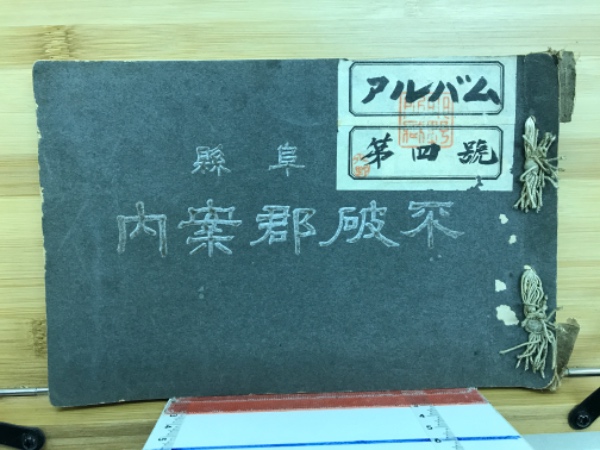 アルバム
第四號
阜縣
不破郡案内